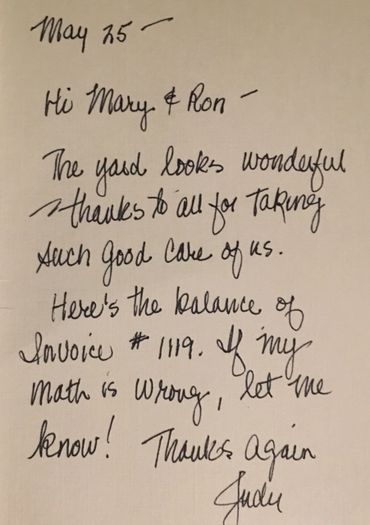 May 25 –
Hi Mary & Ron –
The yard looks wonderful
– thanks to all for taking
such good care of us.
Here's the balance of
Invoice # 1119. If my
math is wrong, let me
know! Thanks again
Judy